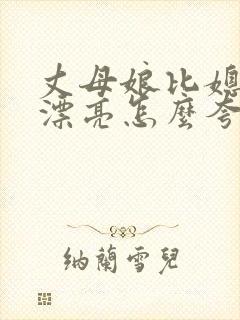 丈母娘比媳
漂亮怎麼夸
纳蘭雪兒